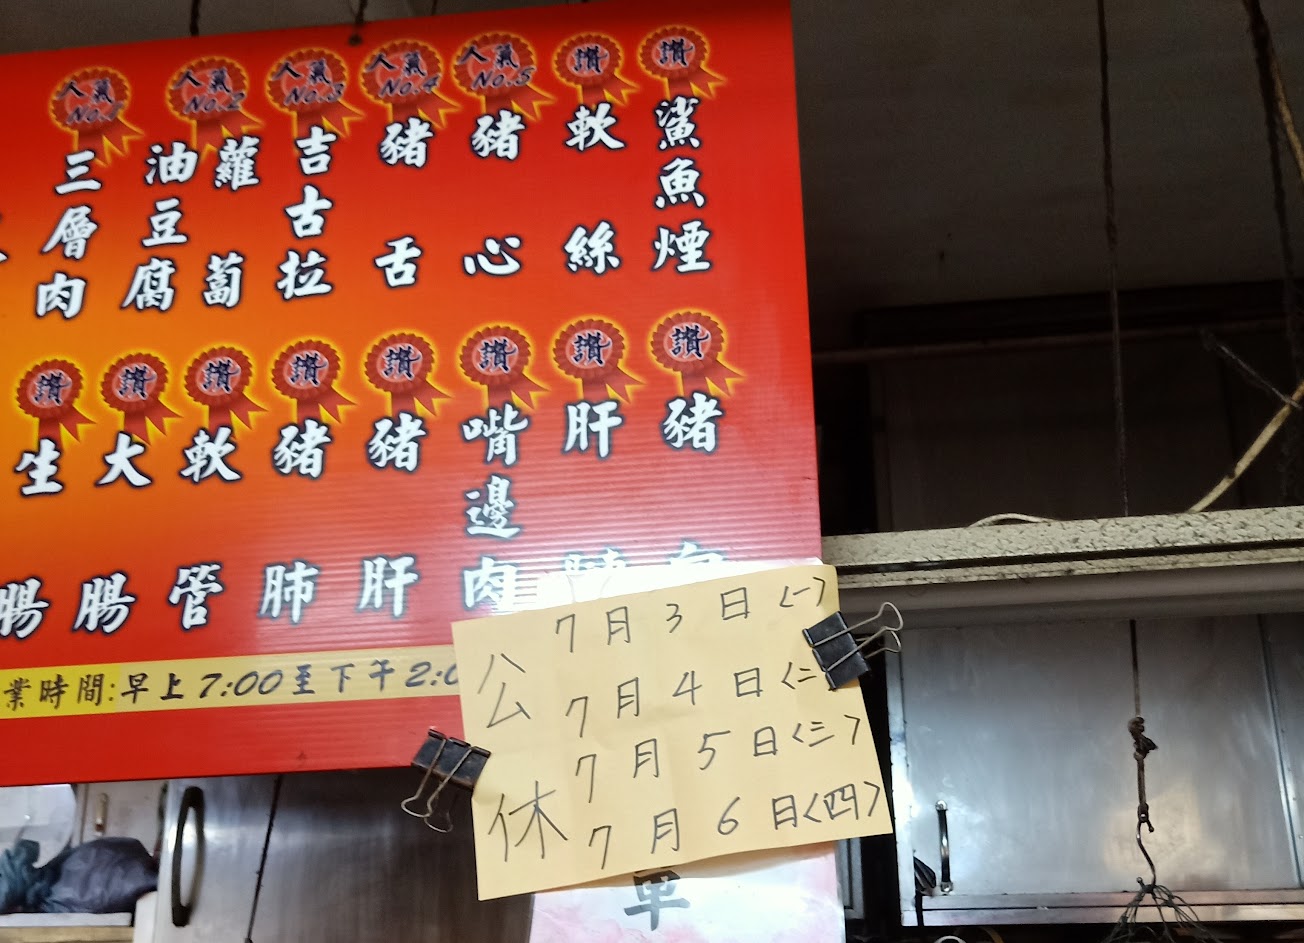 人氣No.1
三層肉
人氣No.2
油豆腐
蘿蔔
人氣No.3
吉古拉
人氣No.4
豬舌
人氣No.5
豬心
讚
軟絲
讚
鯊魚煙
讚
生腸
讚
大腸
讚
軟管
讚
豬肺
讚
豬肝
讚
嘴邊肉
讚
肝
讚
豬
業時間:早上7:00至下午2:0
公休
7月3日<一>
7月4日<二
7月5日<三>
7月6日<四>
單